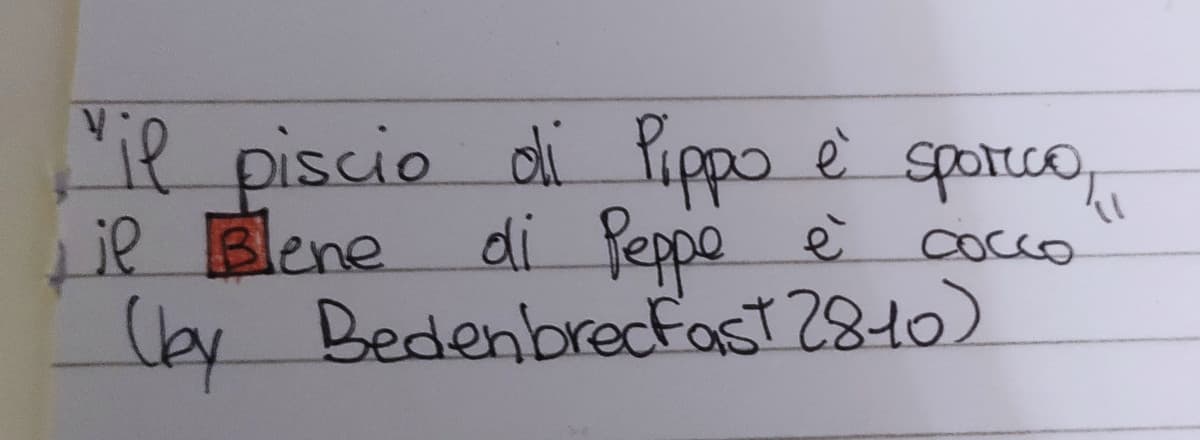 "il piscio di Pippo è sporco,
il Bene di Peppe è cocco"
(by Bedenbrecfast2810)